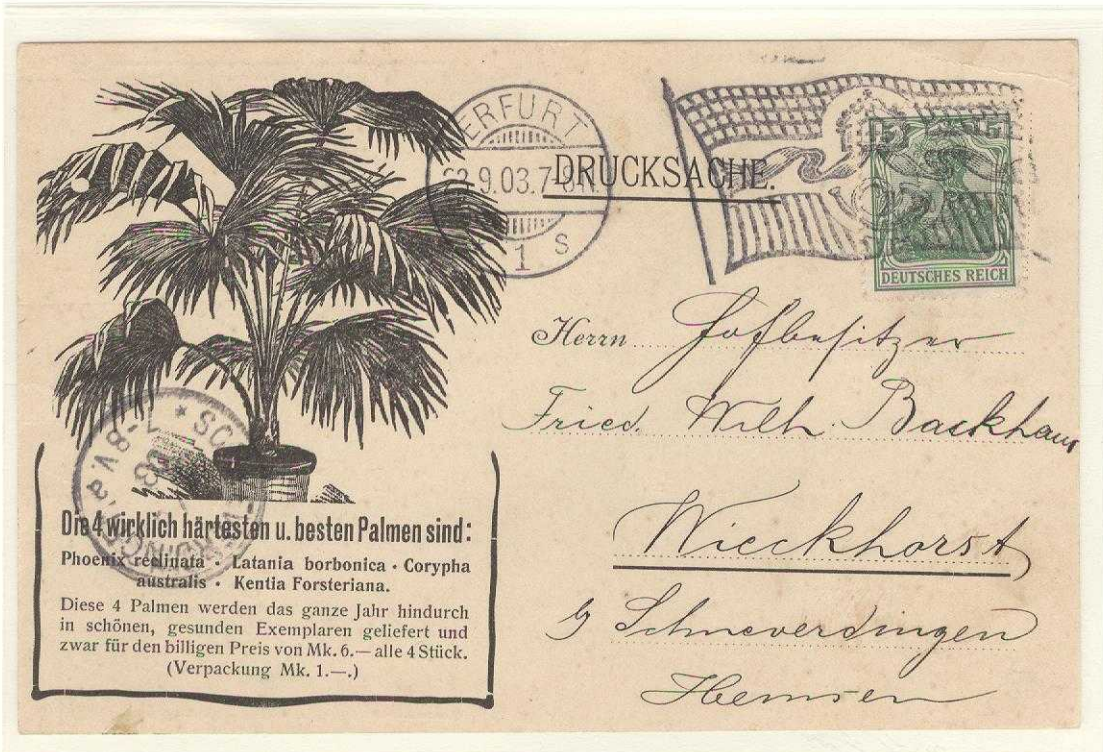 ERFURT
9.03.7-8N.
1 s
DRUCKSACHE.
5 5
DEUTSCHES REICH
Herrn Hofbesitzer
Fried. Wilh. Backhaus
Wieckhorst
b/ Schneverdingen
Die 4 wirklich härtesten u. besten Palmen sind:
Phoenix reclinata · Latania borbonica · Corypha
australis · Kentia Forsteriana.
Diese 4 Palmen werden das ganze Jahr hindurch
in schönen, gesunden Exemplaren geliefert und
zwar für den billigen Preis von Mk. 6.— alle 4 Stück.
(Verpackung Mk. 1.—.)